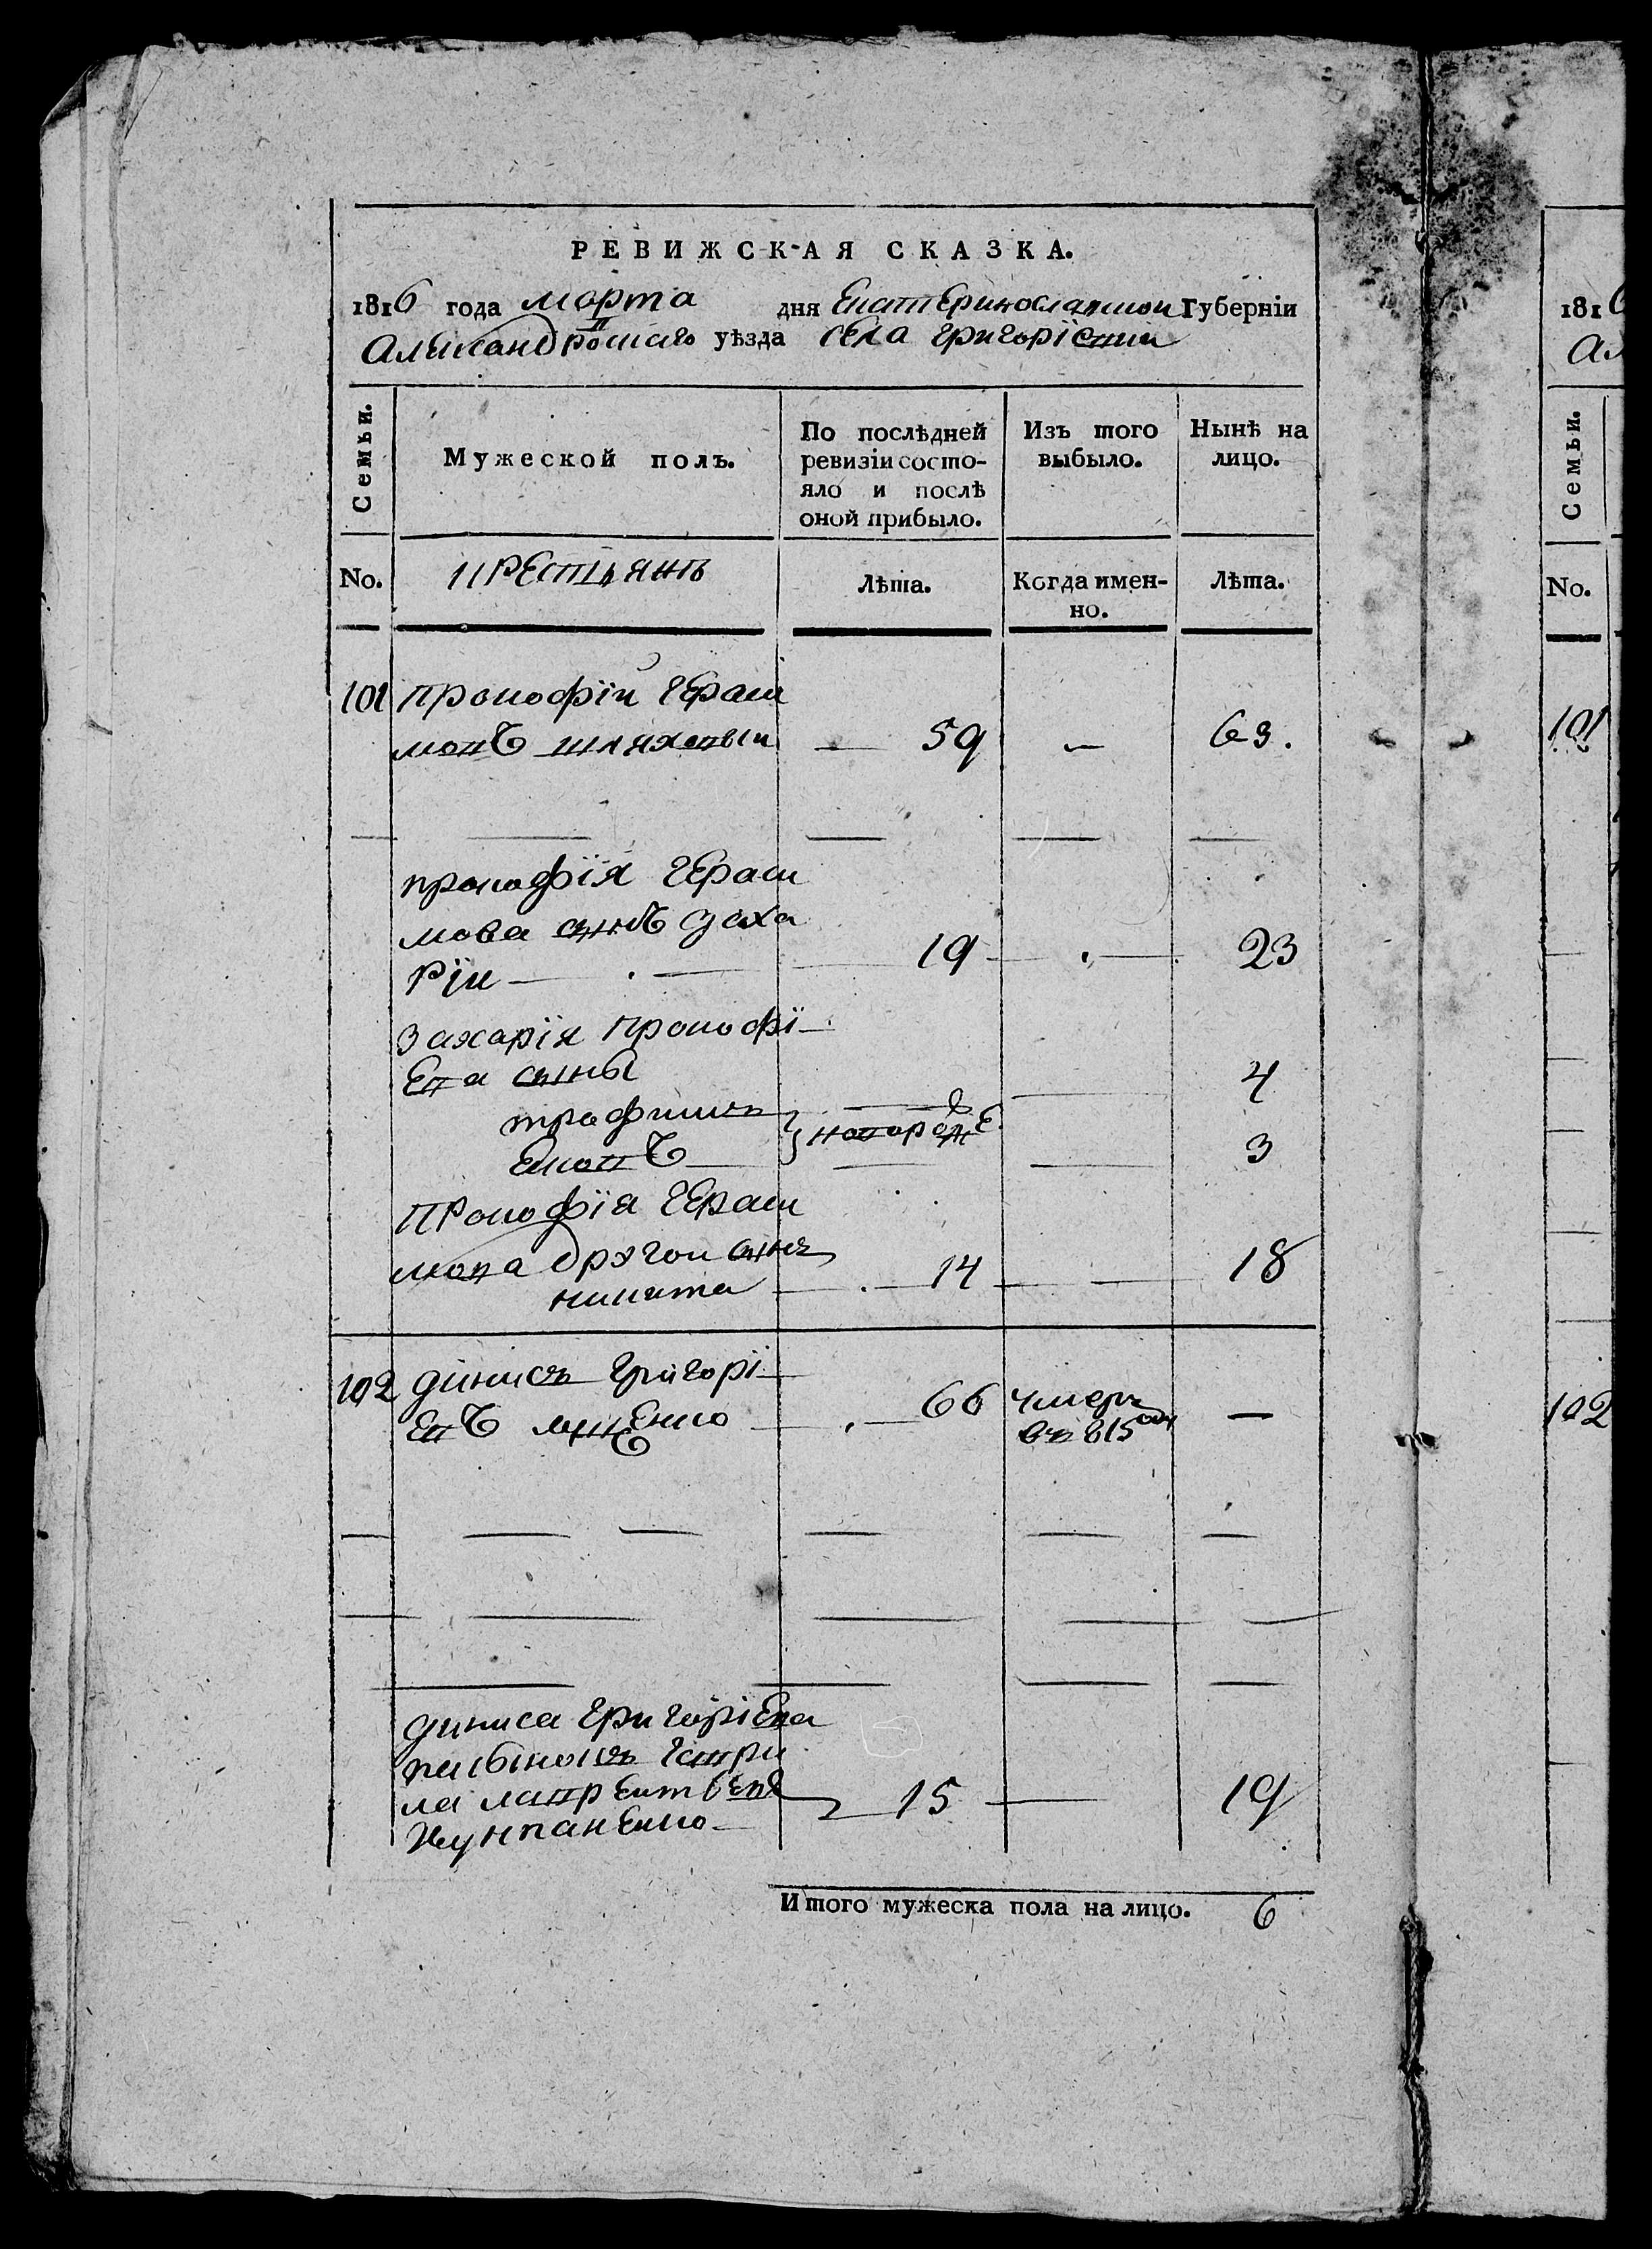 РЕВИЖСКАЯ СКАЗКА.
1816 года марта дня Екатеринославской Губерніи
Александровскаго уѣзда села Григорiевки
Семьи.
Мужеской полъ.
По послѣдней ревизіи состо-
яло и послѣ
оной прибыло.
Изъ того
выбыло.
Нынѣ на
лицо.
No.
крестьянъ
Лѣта.
Когда имен-
но.
Лѣта.
101 Прокофiй Гераси
мовъ 59 — 63.
прокофiя Гераси
мова сынъ Заха
рiи 19 — 23
Захарiя Прокофi
ева сыны
трафимъ 4
новорожде
3
Прокофiя Гераси
мова другой сынъ
никита 14 — 18
102 динисъ Григорi
евъ 66 умеръ —
въ 815
диниса Григорiева
Гаври
15 — 19
Итого мужеска пола на лицо. 6
1816
Ал
Семьи.
No.
101
102